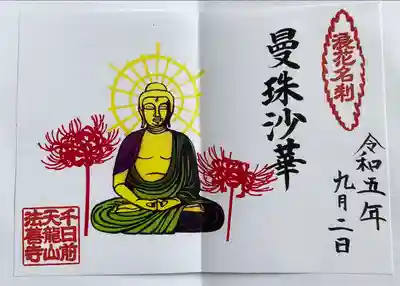 浪花名刹
曼珠沙華
令和五年
九月二日
千日前
天龍山
法善寺